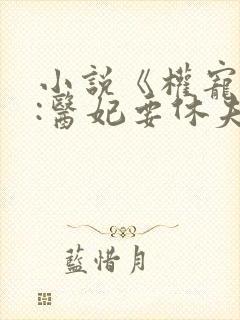 小說《權寵
:醫妃要休夫
藍惜月